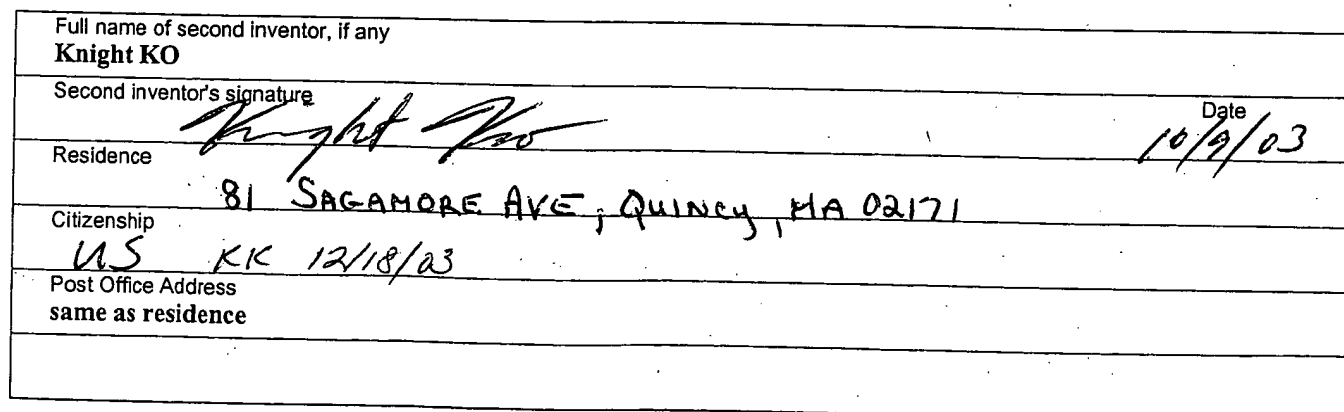 Full name of second inventor, if any
Knight KO
Second inventor's signature
Knight Ko
Date
10/9/03
Residence
81 SAGAMORE AVE, QUINCY, MA 02171
Citizenship
US KK 12/18/03
Post Office Address
same as residence